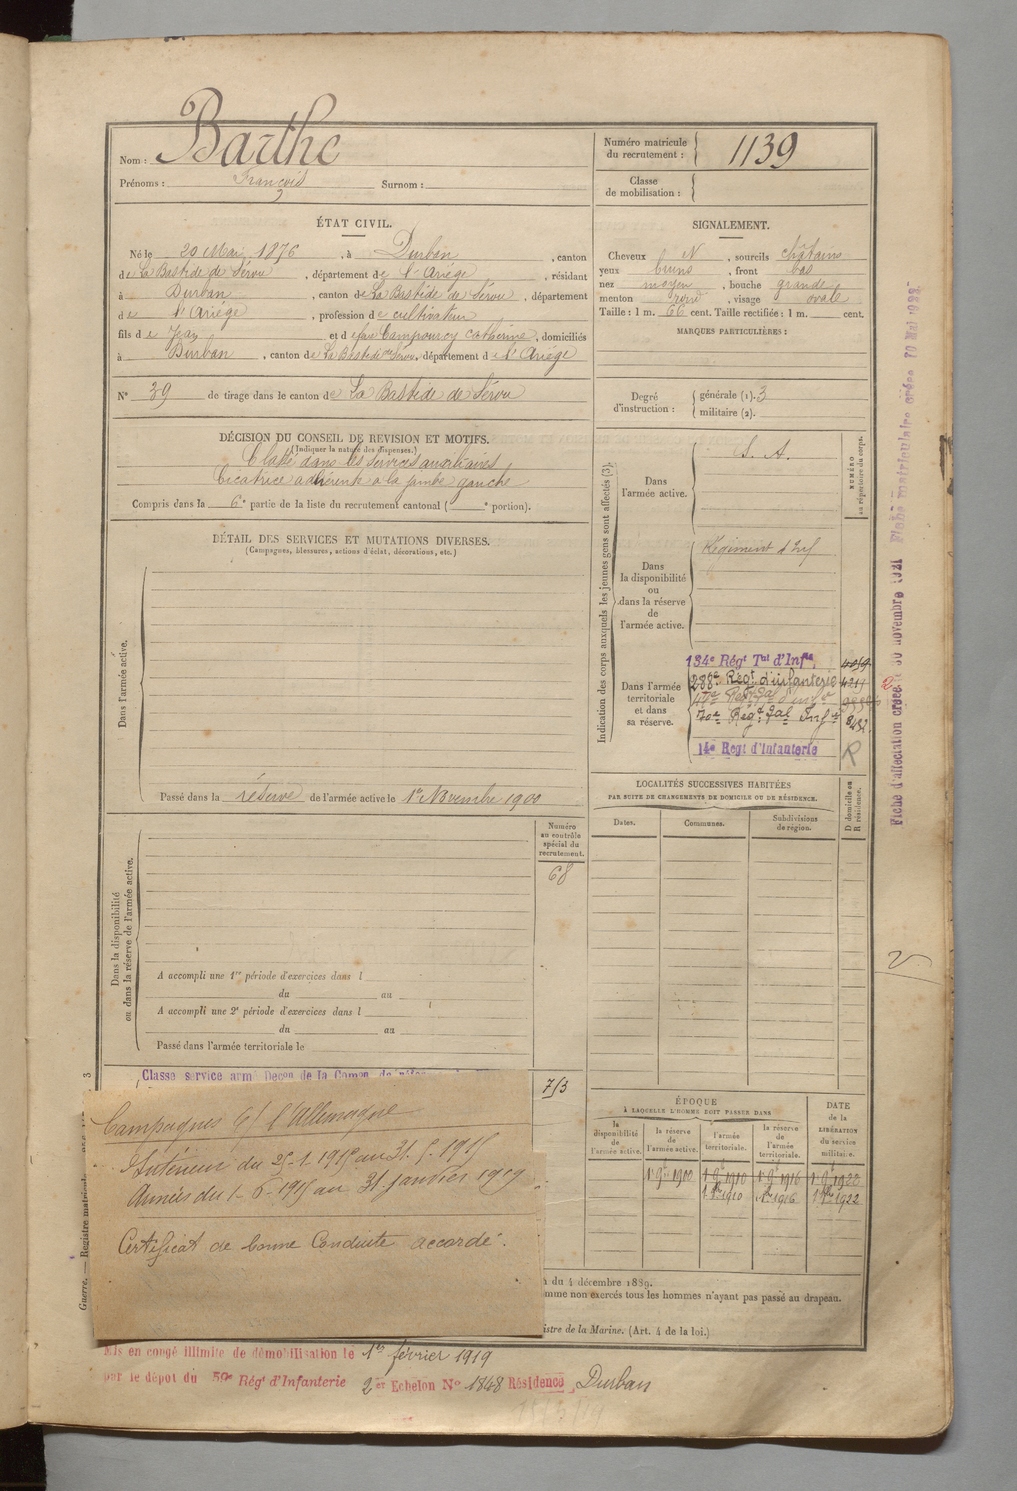 Nom : Barthe
Prénoms : François Surnom :
Numéro matricule
du recrutement : 1139
Classe
de mobilisation :
ÉTAT CIVIL.
Né le 20 Mai 1876, à Durban, canton
de La Bastide de Sérou, département de l'Ariège, résidant
à Durban, canton de La Bastide de Sérou, département
de l'Ariège, profession de cultivateur
fils de Jean et de feue Campourcy Catherine, domiciliés
à Durban, canton de La Bastide de Sérou, département de l'Ariège
N° 39 de tirage dans le canton de La Bastide de Sérou
SIGNALEMENT.
Cheveux N, sourcils châtains
yeux bruns, front bas
nez moyen, bouche grande
menton rond, visage ovale
Taille : 1 m. 66 cent. Taille rectifiée : 1 m. cent.
MARQUES PARTICULIÈRES :
Degré
d'instruction :
générale (1). 3
militaire (2).
DÉCISION DU CONSEIL DE REVISION ET MOTIFS.
(Indiquer la nature des dispenses.)
Classé dans les services auxiliaires
Cicatrice adhérente à la jambe gauche
Compris dans la 6e partie de la liste du recrutement cantonal ( e portion).
DÉTAIL DES SERVICES ET MUTATIONS DIVERSES.
(Campagnes, blessures, actions d'éclat, décorations, etc.)
Dans l'armée active.
Passé dans la réserve de l'armée active le 1er Novembre 1900
Indication des corps auxquels les jeunes gens sont affectés (3).
NUMÉRO
au répertoire du corps.
Dans
l'armée active.
S. A.
Dans
la disponibilité
ou
dans la réserve
de
l'armée active.
Régiment d'Inf
Dans l'armée
territoriale
et dans
sa réserve.
134e Régt Tal d'Infie
288e Regt d'infanterie
70e Regt Tal Infie
14e Regt d'Infanterie
R
LOCALITÉS SUCCESSIVES HABITÉES
PAR SUITE DE CHANGEMENTS DE DOMICILE OU DE RÉSIDENCE.
Dates.
Communes.
Subdivisions
de région.
D domicile ou
R résidence.
Dans la disponibilité
ou dans la réserve de l'armée active.
Numéro
au contrôle
spécial du
recrutement.
68
A accompli une 1re période d'exercices dans l
du au
A accompli une 2e période d'exercices dans l
du au
Passé dans l'armée territoriale le
Classe service armé Decon de la Comon de
713
Campagnes c/ l'Allemagne
Intérieur du 25-1-1915 au 31-5-1915
Armées du 1-6-1915 au 31 janvier 1919
Certificat de bonne Conduite accordé.
ÉPOQUE
à LAQUELLE L'HOMME DOIT PASSER DANS
la
disponibilité
de
l'armée active.
la réserve
de
l'armée active.
l'armée
territoriale.
la réserve
de
l'armée
territoriale.
DATE
de la
LIBÉRATION
du service
militaire.
1er 9bre 1900 1er 9bre 1910 1er 9bre 1916 1er 9bre 1922
1910 1916 1922
à du 4 décembre 1889.
omme non exercés tous les hommes n'ayant pas passé au drapeau.
istre de la Marine. (Art. 4 de la loi.)
Mis en congé illimité de démobilisation le 1er février 1919
par le dépot du 59e Régt d'Infanterie 2e Echelon N° 1848 Résidence Durban
Guerre. — Registre
3
Fiche d'affectation créée 30 novembre 1921
Fiche matriculaire créée